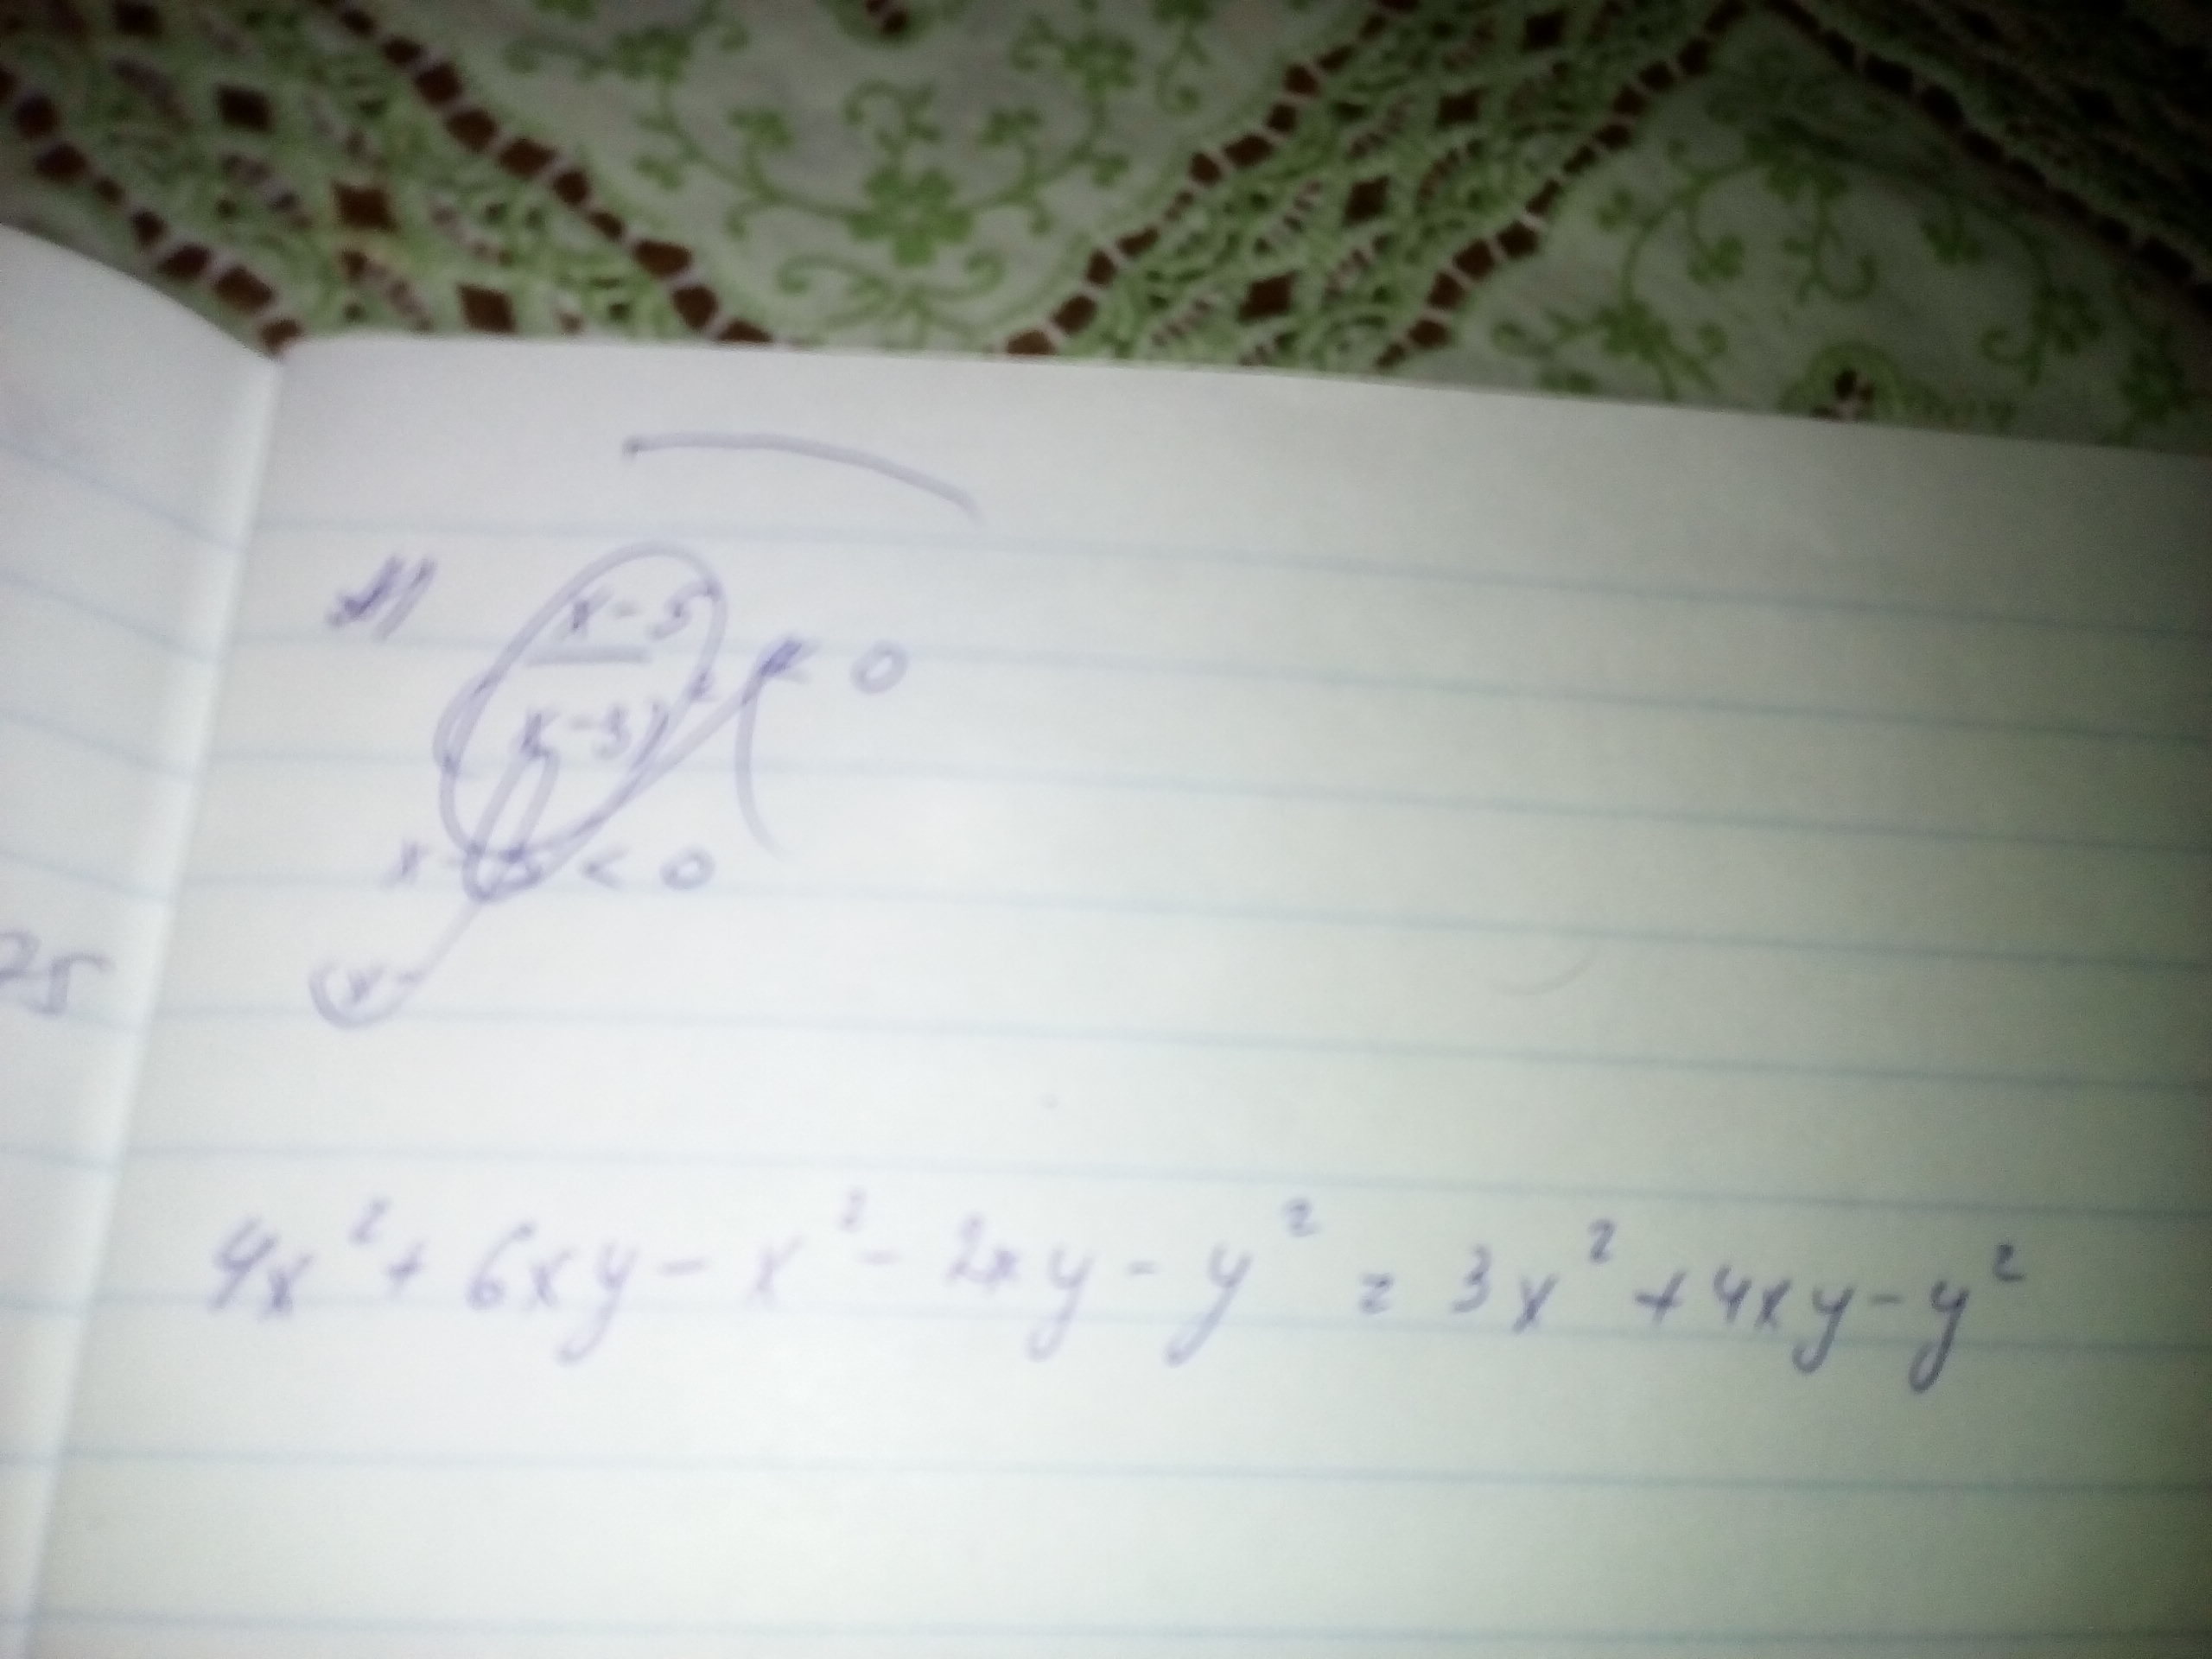 x-5
x-3)² < 0
x-5 < 0
25
(x-
4x² + 6xy - x² - 2xy - y² = 3x² + 4xy - y²